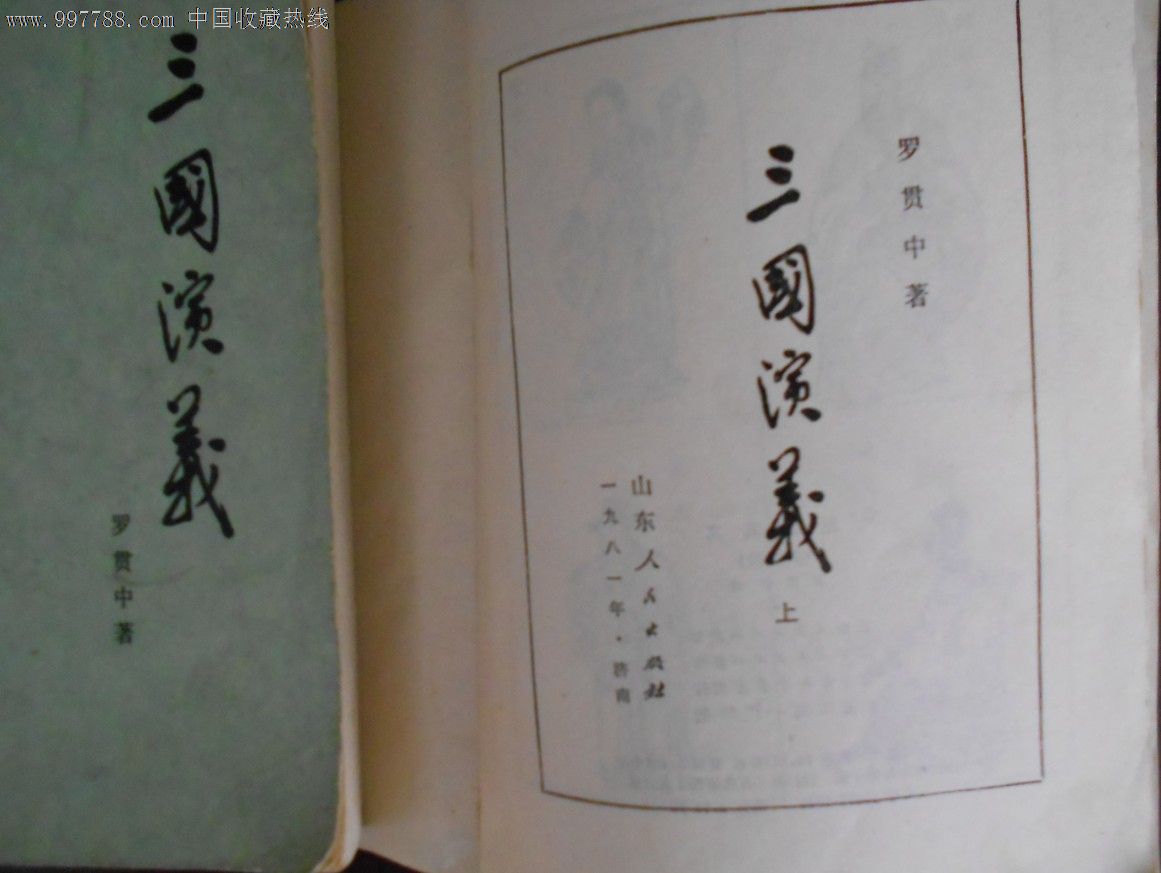 www.997788.com 中国收藏热线
三國演義
罗贯中著
罗贯中著
三國演義
上
山东人民出版社
一九八一年·济南